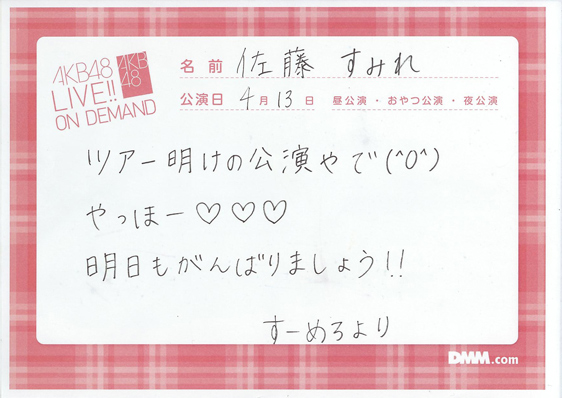 AKB48
LIVE!!
ON DEMAND
AKB
48
名前 佐藤 すみれ
公演日 4月13日 昼公演・おやつ公演・夜公演
ツアー明けの公演やで(^o^)
やっほー♡♡♡
明日もがんばりましょう!!
すーめろより
DMM.com